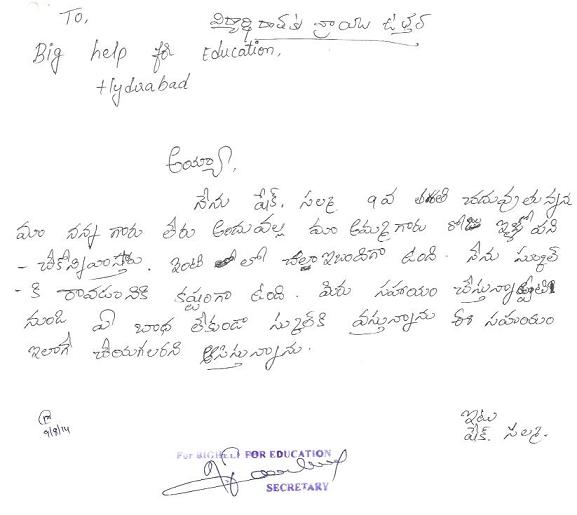 To,
విద్యార్థి రాసిన వ్రాయు ఉత్తర్
Big help for Education,
Hyderabad
అయ్యా,
నేను షేక్. సల్మా 9వ తరగతి చదువుతున్నన
మా నాన్న గారు లేరు అందువల్ల మా అమ్మగారు రోజు ఇళ్లలో పని
- చేసేవారు. ఇంటి లో చల్లా ఇబందిగా ఉంది. నేను స్కుల్
- కి రావడానికి కష్టంగా ఉంది. మీరు సహాయం చేస్తున్నా
నుండి ఏ బాధ లేకుండా స్కుల్‌కి వస్తున్నాను ఈ సహయం
ఇలాగే చేయగలరని ఆసిస్తున్నాను.
9/8/14
ఇట్లు
షేక్. సల్మ.
For BIG HELP FOR EDUCATION
SECRETARY